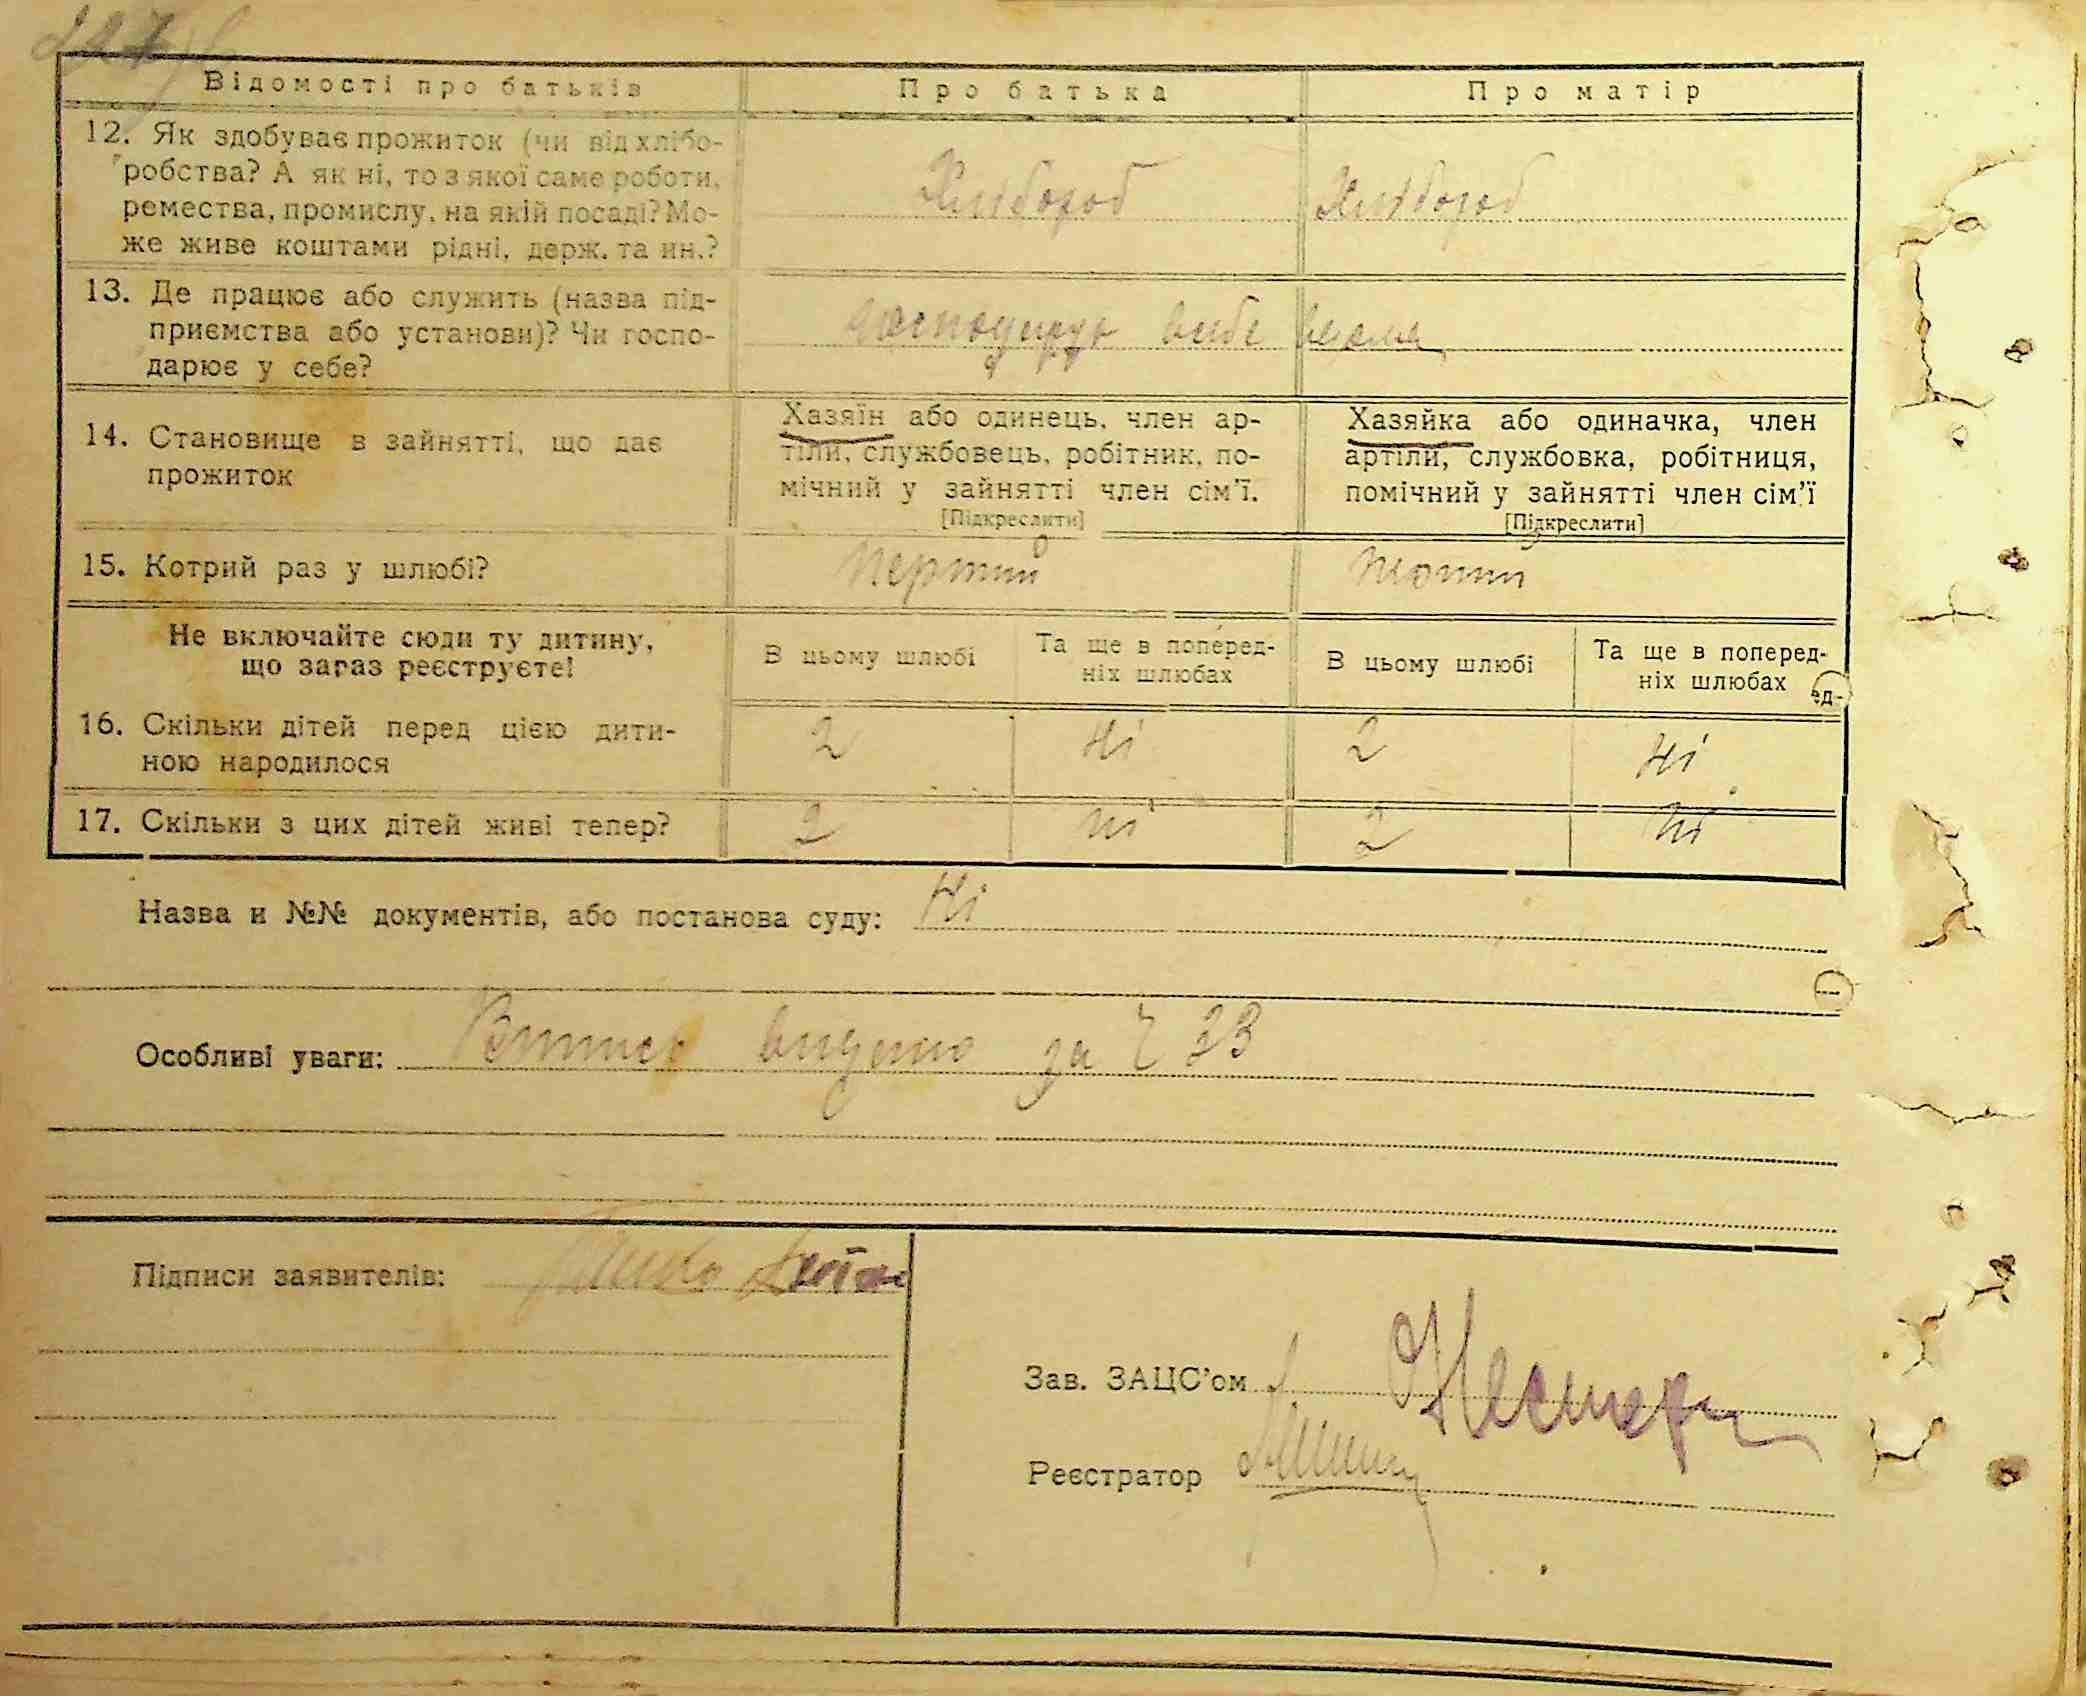 Відомості про батьків Про батька Про матір
12. Як здобуває прожиток (чи від хлібо-
робства? А як ні, то з якої саме роботи,
ремества, промислу, на якій посаді? Мо-
же живе коштами рідні, держ. та ин.?
Хлібороб Хлібороб
13. Де працює або служить (назва під-
приємства або установи)? Чи госпо-
дарює у себе?
14. Становище в зайнятті, що дає
прожиток
Хазяїн або одинець, член ар-
тіли, службовець, робітник, по-
мічний у зайнятті член сім'ї.
[Підкреслити]
Хазяйка або одиначка, член
артіли, службовка, робітниця,
помічний у зайнятті член сім'ї
[Підкреслити]
15. Котрий раз у шлюбі? перший перший
Не включайте сюди ту дитину,
що зараз реєструєте!
В цьому шлюбі
Та ще в поперед-
ніх шлюбах
В цьому шлюбі
Та ще в поперед-
ніх шлюбах
ед-
16. Скільки дітей перед цією дити-
ною народилося
2 Ні 2 Ні
17. Скільки з цих дітей живі тепер? 2 ні 2 ні
Назва и №№ документів, або постанова суду: Ні
Особливі уваги: Витпис видано за Ч 33
Підписи заявителів:
Зав. ЗАЦС'ом
Реєстратор